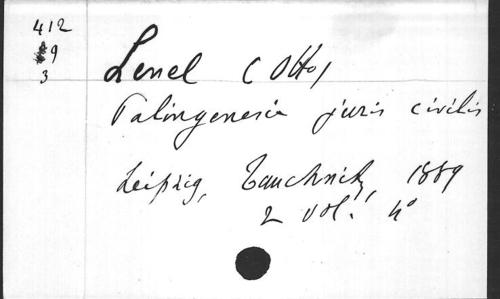 412
9
3
Lenel (Otto)
Palingenesia juris civilis
Leipzig, Tauchnitz, 1889
2 vol. 4°